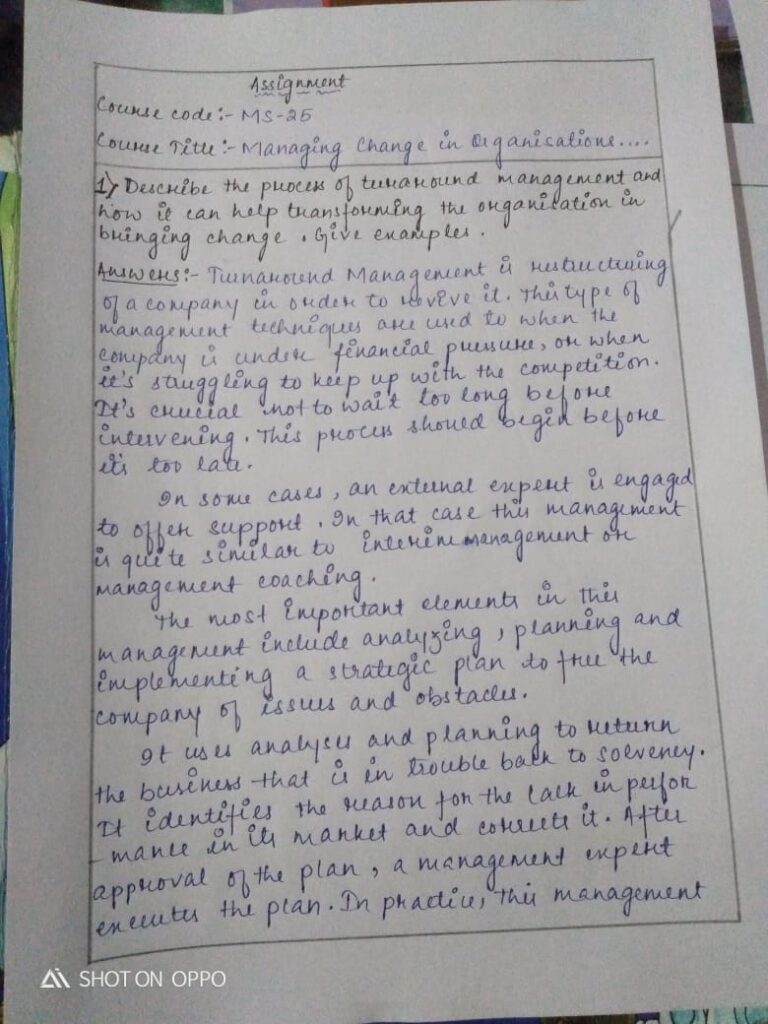 Assignment
Course code:- MS-25
Course Title:- Managing Change in Organisations....
1) Describe the process of turnaround management and
how it can help transforming the organisation in
bringing change. Give examples.
Answers:- Turnaround Management is restructuring
of a company in order to revive it. This type of
management techniques are used to when the
company is under financial pressure, or when
it's struggling to keep up with the competition.
It's crucial not to wait too long before
intervening. This process should begin before
it's too late.
In some cases, an external expert is engaged
to offer support. In that case this management
is quite similar to interim management or
management coaching.
The most important elements in this
management include analyzing, planning and
implementing a strategic plan to free the
company of issues and obstacles.
It uses analyses and planning to return
the business that is in trouble back to solvency.
It identifies the reason for the lack in perfor
-mance in its market and corrects it. After
approval of the plan, a management expert
executes the plan. In practice, this management
SHOT ON OPPO